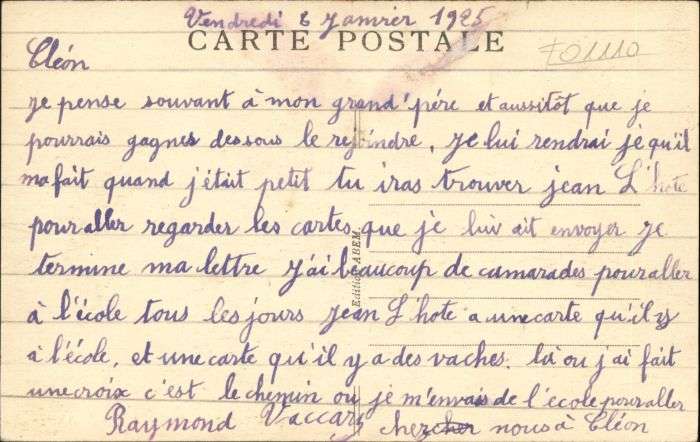 Vendredi 2 Janvier 1925
CARTE POSTALE
Cléon
je pense souvant à mon grand'pére et aussitôt que je
pourrais gagnes des sous le rejoindre, je lui rendrai je qu'il
ma fait quand j'était petit tu iras trouver jean L'hote
pour aller regarder les cartes que je luiv ait envoyer je
termine ma lettre j'ai beaucoup de camarades pour aller
à l'école tous les jours jean L'hote a une carte qu'il y
à l'école, et une carte qu'il y a des vaches. là ou j'ai fait
une croix c'est le chemin ou je m'envais de l'école pour aller
Raymond Vaccary
chercher nous à Cléon
Edition ABEM.